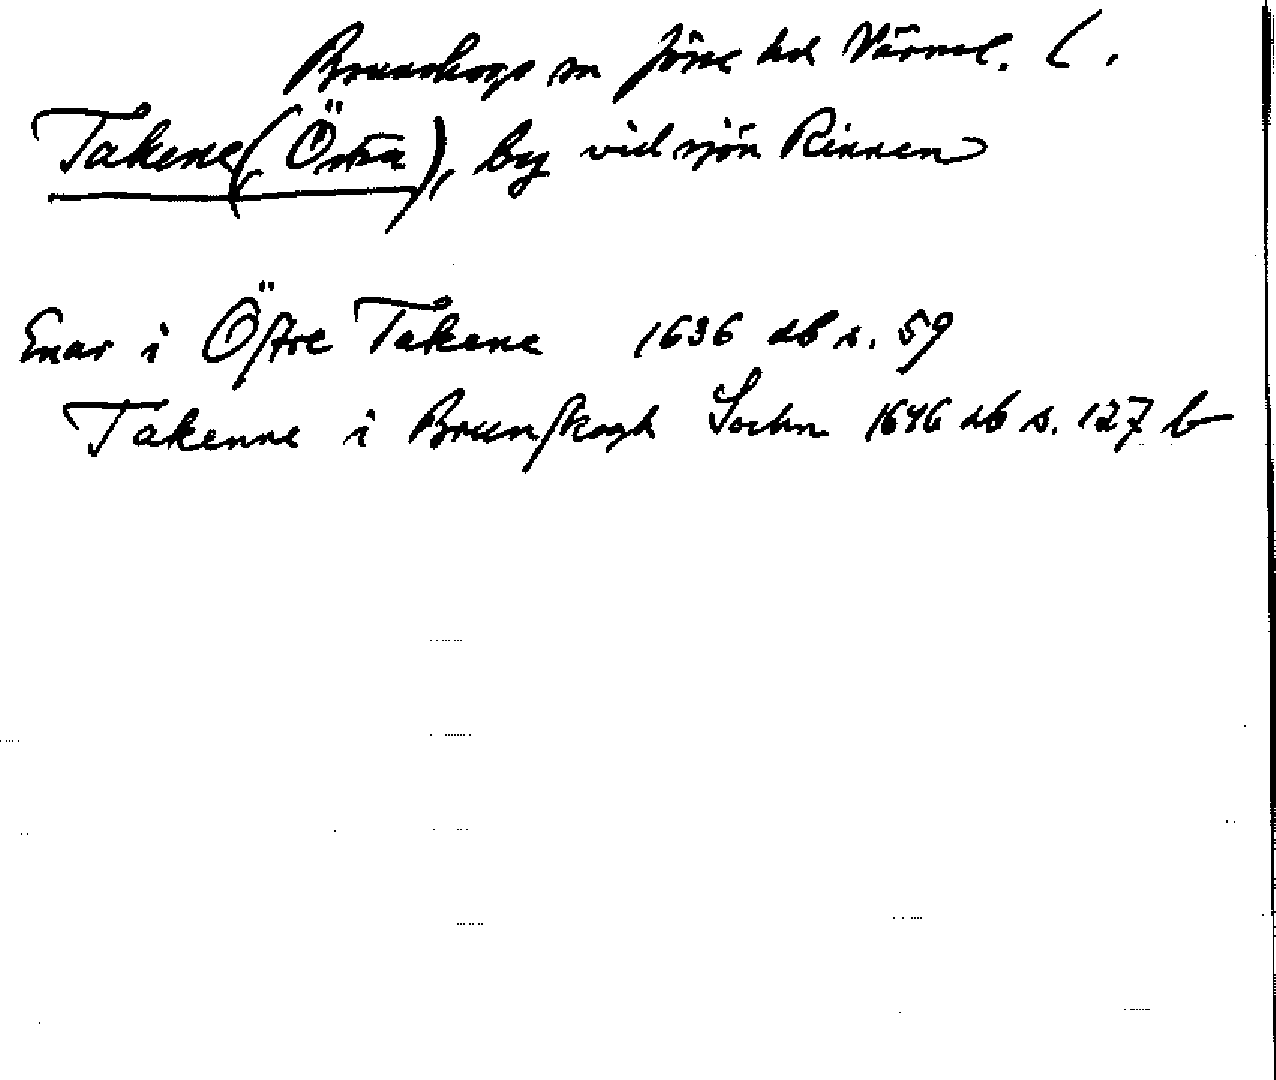 Brunskogs sn Jösse hd Värml. L.
Takene (Östra), by vid sjön Rinnen
Enar i Öftre Takene 1636 db s. 59
Takenne i Brunskogh Sochn 1646 db s. 127 b